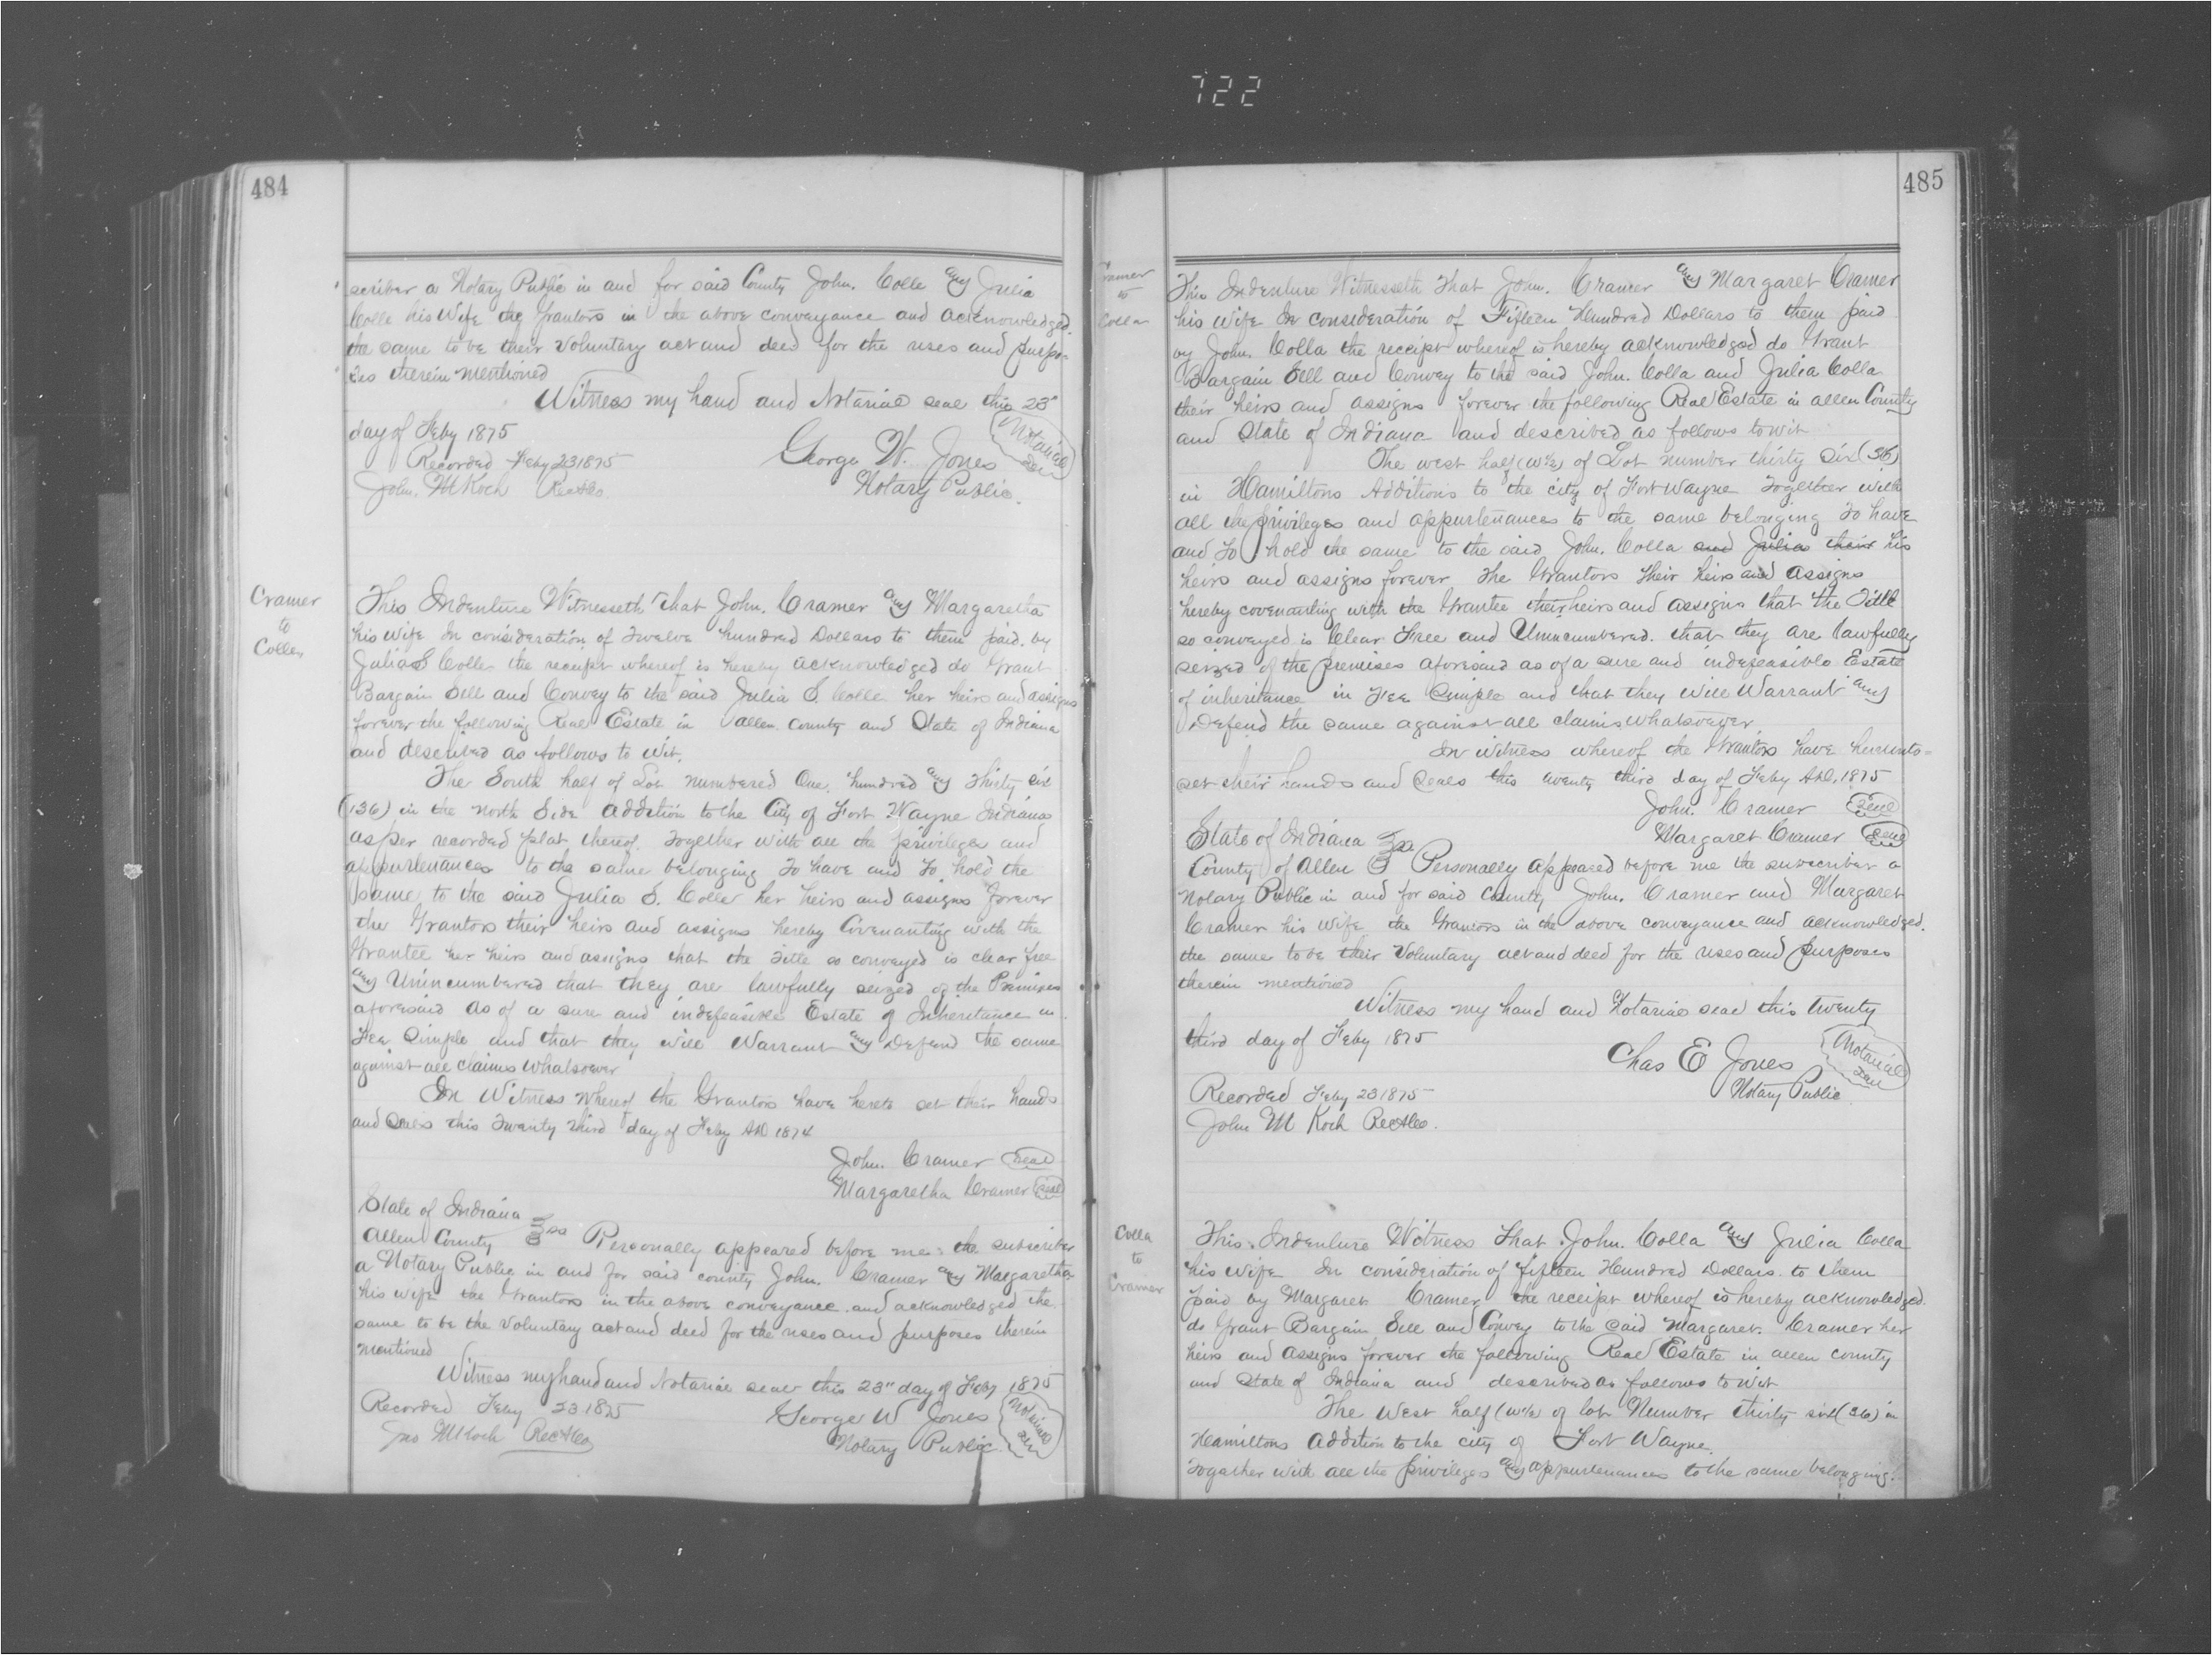 722
484
scriber a Notary Public in and for said County John. Colle and Julia
Colle his Wife the Grantors in the above conveyance and acknowledged
the same to be their Voluntary act and deed for the uses and purpo-
ses therein mentioned
Witness my hand and Notarial seal this 23"
day of Feby 1875
Recorded Feby 23 1875
George W. Jones
Notarial Seal
John. M Koch
Notary Public.
Cramer
to
Colle
This Indenture Witnesseth That John. Cramer and Margaretha
his Wife In consideration of Twelve hundred Dollars to them paid. by
Julia S Colle the receipt whereof is hereby acknowledged do Grant
Bargain Sell and Convey to the said Julia S. Colle her heirs and assigns
forever the following Real Estate in Allen County and State of Indiana
and described as follows to wit.
The South half of Lot numbered One hundred and Thirty six
(136) in the North Side Addition to the City of Fort Wayne Indiana
as per recorded plat thereof. Together with all the privileges and
appurtenances to the same belonging To have and To hold the
same to the said Julia S. Colle her heirs and assigns forever
the Grantors their heirs and assigns hereby Covenanting with the
Grantee her heirs and assigns that the Title so conveyed is clear free
and Unincumbered that they are lawfully seized of the Premises
aforesaid as of a sure and indefeasible Estate of Inheritance in
Fee Simple and that they will Warrant and Defend the same
against all claims Whatsoever
In Witness Whereof the Grantors have hereto set their hands
and Seals this Twenty Third day of Feby AD 1874
John. Cramer Seal
Margaretha Cramer Seal
State of Indiana
Allen County ss Personally appeared before me the subscriber
a Notary Public in and for said county John. Cramer and Margaretha
his wife the Grantors in the above conveyance and acknowledged the
same to be the Voluntary act and deed for the uses and purposes therein
mentioned
Witness my hand and Notarial seal this 23" day of Feby 1875
Recorded Feby 23 1875
George W Jones
Notarial Seal
Jno M Koch
Notary Public
485
Cramer
to
Colla
This Indenture Witnesseth That John. Cramer and Margaret Cramer
his Wife In consideration of Fifteen Hundred Dollars to them paid
by John. Colla the receipt whereof is hereby acknowledged do Grant
Bargain Sell and Convey to the said John. Colla and Julia Colla
their heirs and assigns forever the following Real Estate in Allen County
and State of Indiana and described as follows to wit
The west half (W½) of Lot number thirty six (36)
in Hamiltons Additions to the city of Fort Wayne Together with
all the privileges and appurtenances to the same belonging To have
and To hold the same to the said John. Colla and Julia their his
heirs and assigns forever The Grantors their heirs and assigns
hereby covenanting with the Grantee their heirs and assigns that the Title
so conveyed is Clear Free and Unincumbered. that they are lawfully
seized of the premises aforesaid as of a sure and indefeasible Estate
of inheritance in Fee Simple and that they will Warrant and
Defend the same against all claims Whatsoever
In witness whereof the Grantors have hereunto-
set their hands and Seals this twenty third day of Feby AD, 1875
John. Cramer Seal
Margaret Cramer Seal
State of Indiana ss
County of Allen Personally appeared before me the subscriber a
Notary Public in and for said County John. Cramer and Margaret
Cramer his Wife the Grantors in the above conveyance and acknowledged.
the same to be their Voluntary act and deed for the uses and purposes
therein mentioned
Witness my hand and Notarial seal this twenty
third day of Feby 1875
Chas E Jones
Notarial Seal
Notary Public
Recorded Feby 23 1875
John M Koch
Colla
to
Cramer
This Indenture Witness That John. Colla and Julia Colla
his Wife In consideration of fifteen Hundred Dollars. to them
paid by Margaret Cramer the receipt whereof is hereby acknowledged.
do Grant Bargain Sell and Convey to the said Margaret. Cramer her
heirs and assigns forever the following Real Estate in allen county
and State of Indiana and described as follows to wit
The West half (W½) of lot Number thirty six (36) in
Hamiltons Addition to the city of Fort Wayne.
Together with all the privileges and appurtenances to the same belonging.